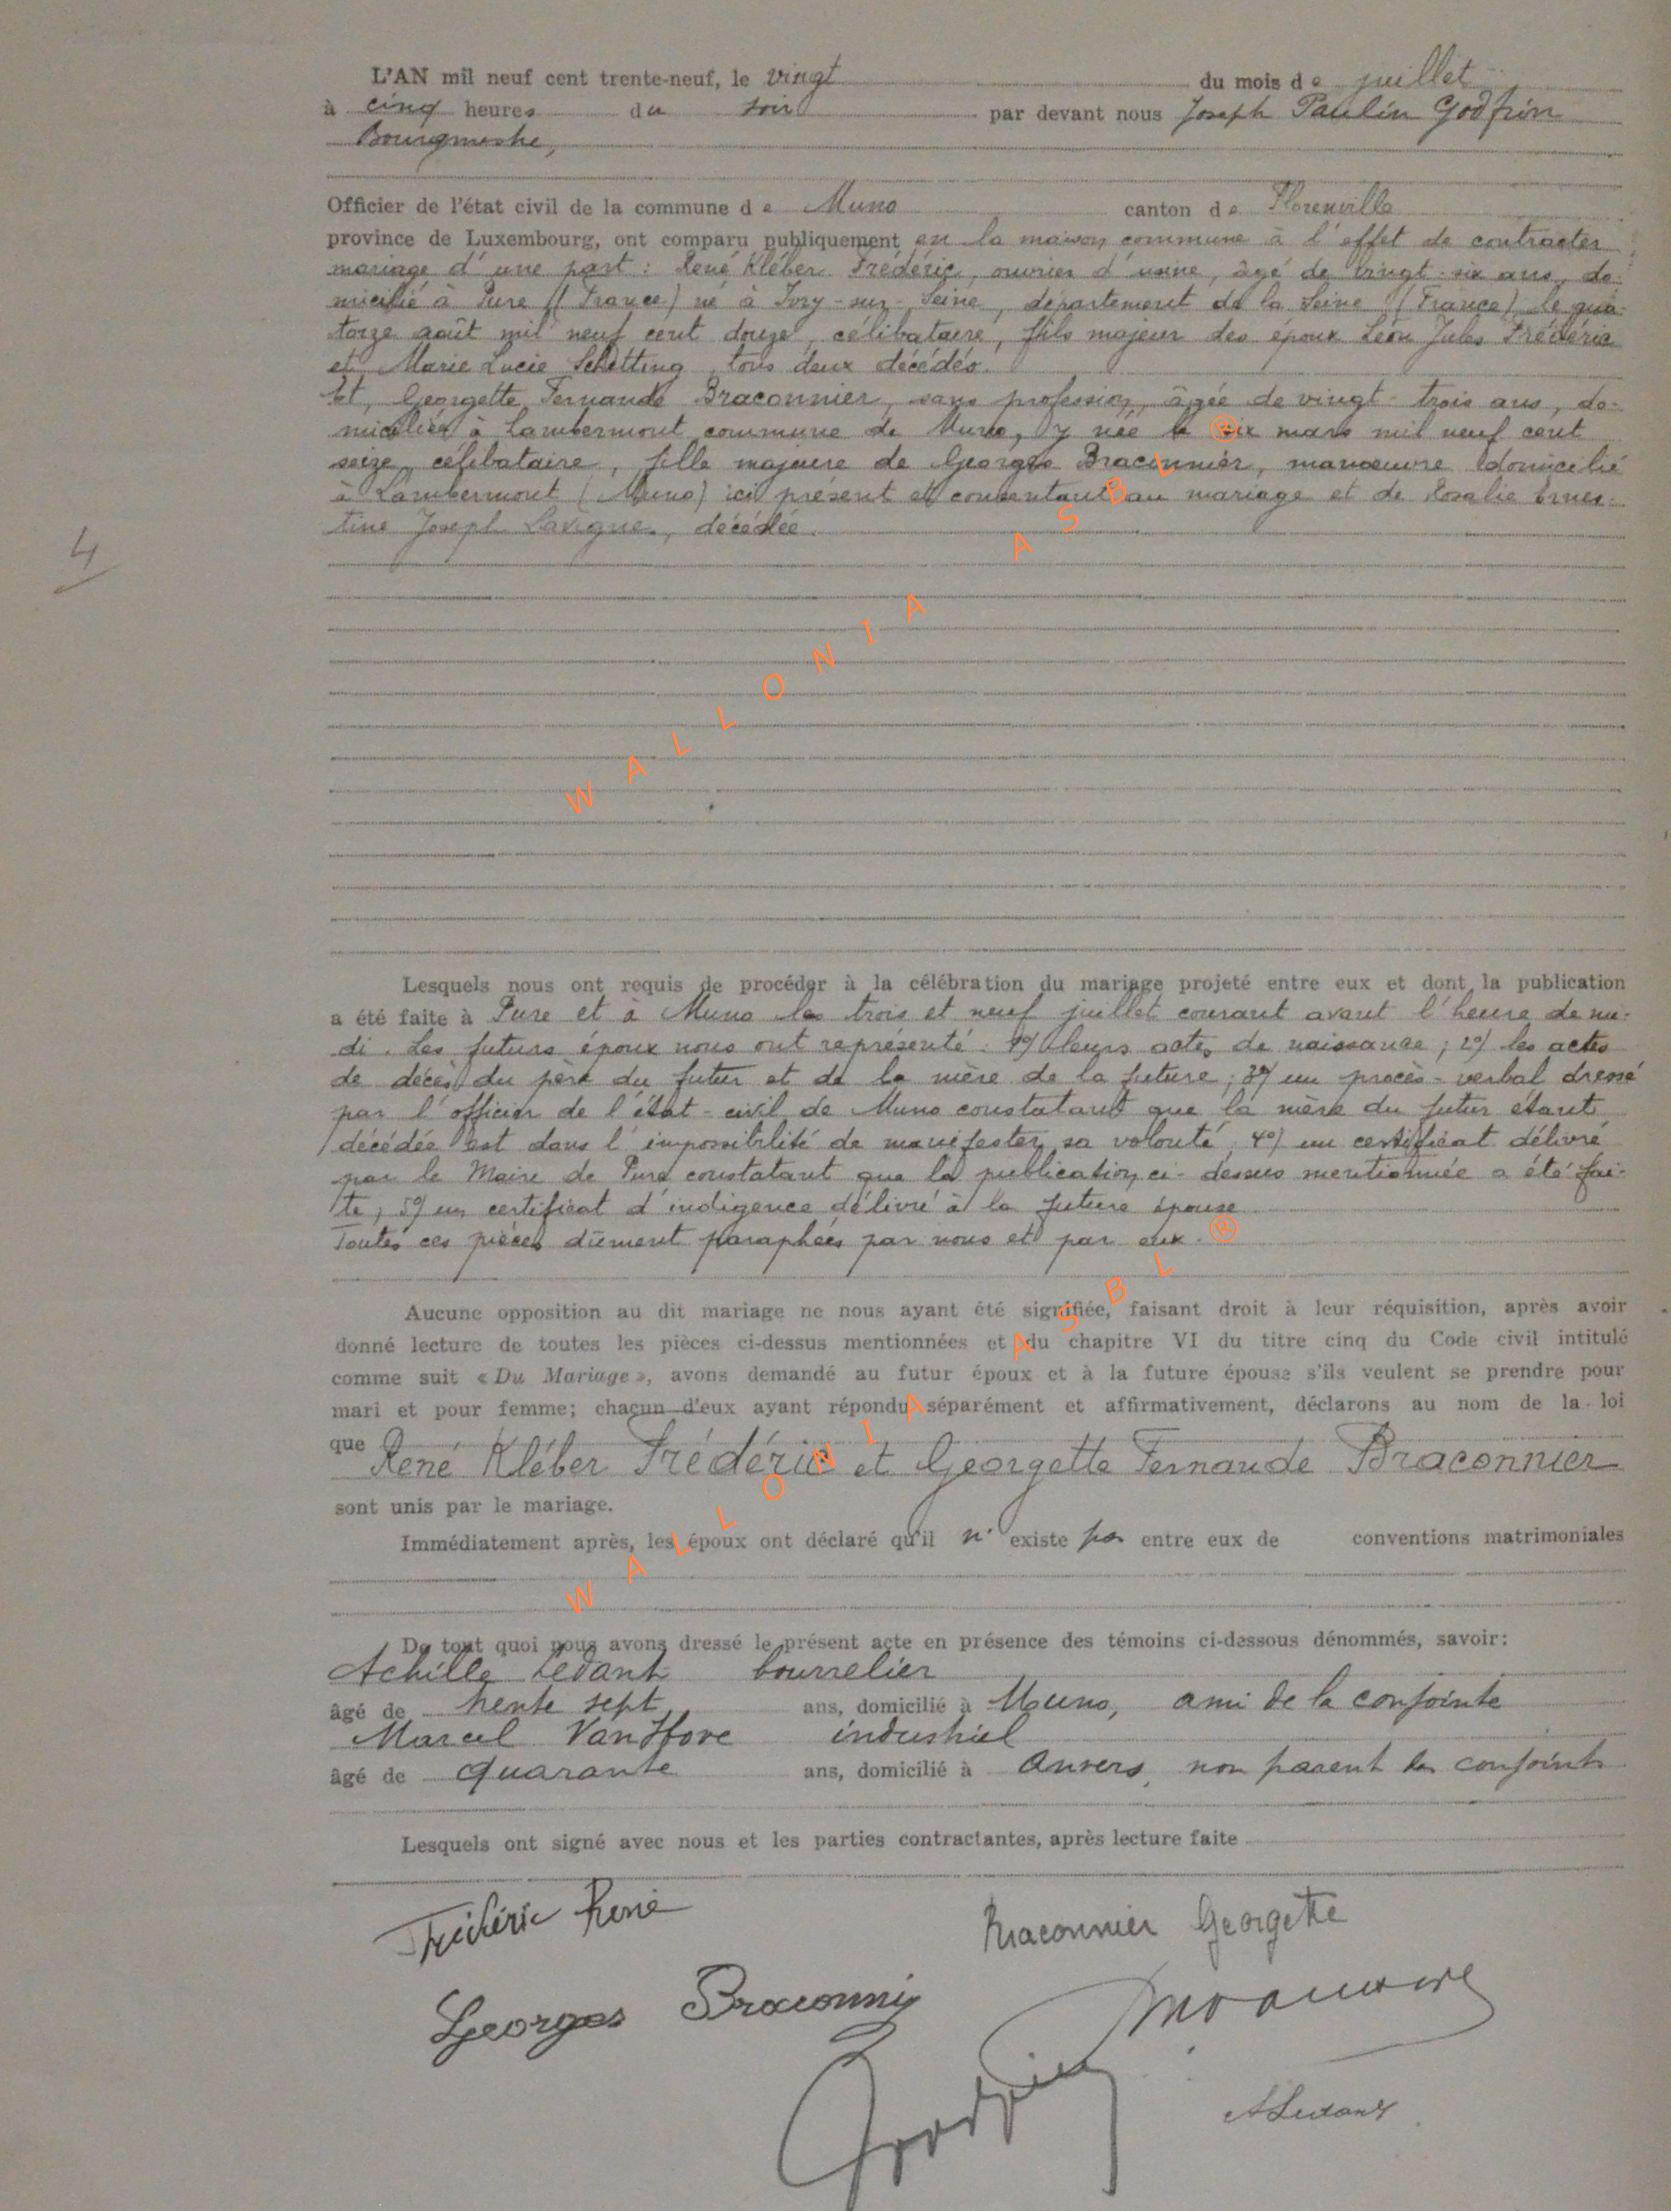 L'AN mil neuf cent trente-neuf, le vingt du mois de juillet
à cinq heures du soir par devant nous Joseph Paulin Godfrin
Bourgmestre,
Officier de l'état civil de la commune de Muno canton de Florenville
province de Luxembourg, ont comparu publiquement en la maison commune à l'effet de contracter
mariage d'une part : René Kléber Frédéric, ouvrier d'usine, âgé de vingt-six ans, do-
micilié à Pure (France) né à Ivry-sur-Seine, département de la Seine (France) le qua-
torze août mil neuf cent douze, célibataire, fils majeur des époux Léon Jules Frédéric
et Marie Lucie Schitting tous deux décédés.
Et, Georgette Fernande Braconnier, sans profession, âgée de vingt-trois ans, do-
miciliée à Lambermont commune de Muno, y née le six mars mil neuf cent
seize, célibataire, fille majeure de Georges Braconnier, manœuvre domicilié
à Lambermont (Muno) ici présent et consentant au mariage et de Rosalie Ernes-
tine Joseph Lavigne, décédée.
4
WALLONIA ASBL ®
Lesquels nous ont requis de procéder à la célébration du mariage projeté entre eux et dont la publication
a été faite à Pure et à Muno les trois et neuf juillet courant avant l'heure de mi-
di. Les futurs époux nous ont représenté : 1º) leurs actes de naissance ; 2º) les actes
de décès du père du futur et de la mère de la future ; 3º) un procès-verbal dressé
par l'officier de l'état-civil de Muno constatant que la mère du futur étant
décédée est dans l'impossibilité de manifester sa volonté, 4º) un certificat délivré
par le Maire de Pure constatant que la publication ci-dessus mentionnée a été fai-
te, 5º) un certificat d'indigence délivré à la future épouse
Toutes ces pièces dûment paraphées par nous et par eux.
Aucune opposition au dit mariage ne nous ayant été signifiée, faisant droit à leur réquisition, après avoir
donné lecture de toutes les pièces ci-dessus mentionnées et du chapitre VI du titre cinq du Code civil intitulé
comme suit « Du Mariage », avons demandé au futur époux et à la future épouse s'ils veulent se prendre pour
mari et pour femme; chacun d'eux ayant répondu séparément et affirmativement, déclarons au nom de la loi
que René Kléber Frédéric et Georgette Fernande Braconnier
sont unis par le mariage.
Immédiatement après, les époux ont déclaré qu'il n' existe pas entre eux de conventions matrimoniales
WALLONIA ASBL ®
De tout quoi nous avons dressé le présent acte en présence des témoins ci-dessous dénommés, savoir:
Achille Ledant bourrelier
âgé de trente sept ans, domicilié à Muno, ami de la conjointe
Marcel VanHove industriel
âgé de quarante ans, domicilié à Anvers, non parent des conjoints
Lesquels ont signé avec nous et les parties contractantes, après lecture faite
Frédéric René
Braconnier Georgette
Georges Braconnier
Godfrin
ALedant